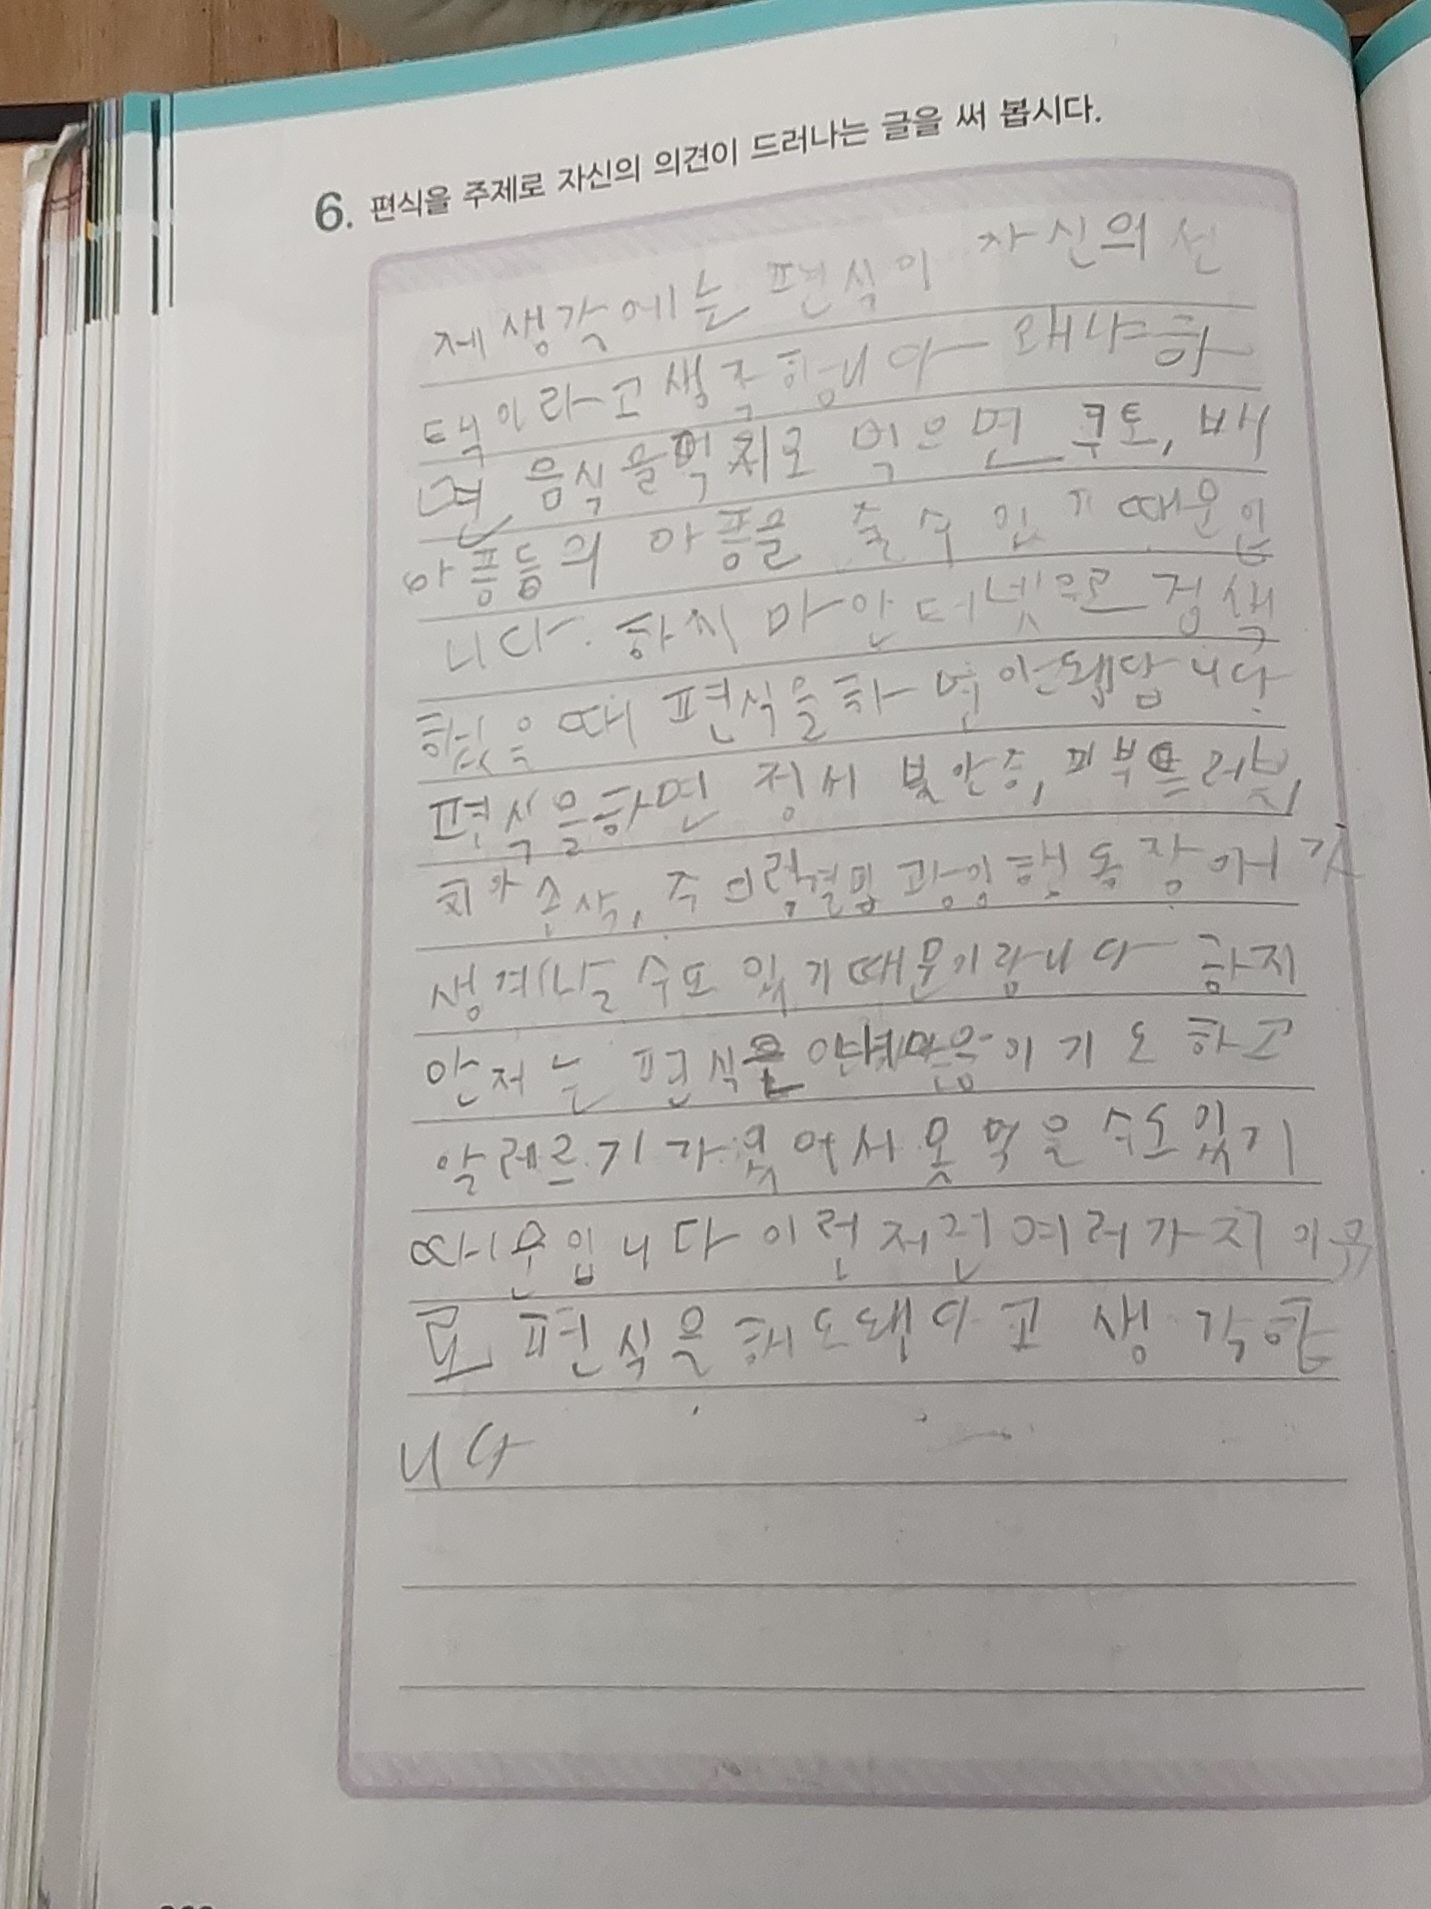 6. 편식을 주제로 자신의 의견이 드러나는 글을 써 봅시다.
제 생각에는 편식이 자신의 선
택이라고 생각합니다 왜냐하
면 음식을 억지로 먹으면 구토, 배
아픔등의 아픔을 줄 수 있기 때문입
니다. 하지만 인터넷으로 검색
했을 때 편식을 하면 안됀답니다
편식을하면 정서 불안증, 피부트러블,
치아 손상, 주의력결핍 과잉행동장애가
생겨날 수도 있기때문이랍니다 하지
만저는 편식은 이기도 하고
알레르기가있어서 못 먹을 수도있기
때문입니다 이런저런 여러가지 이유
로 편식을 해도됀다고 생각합
니다